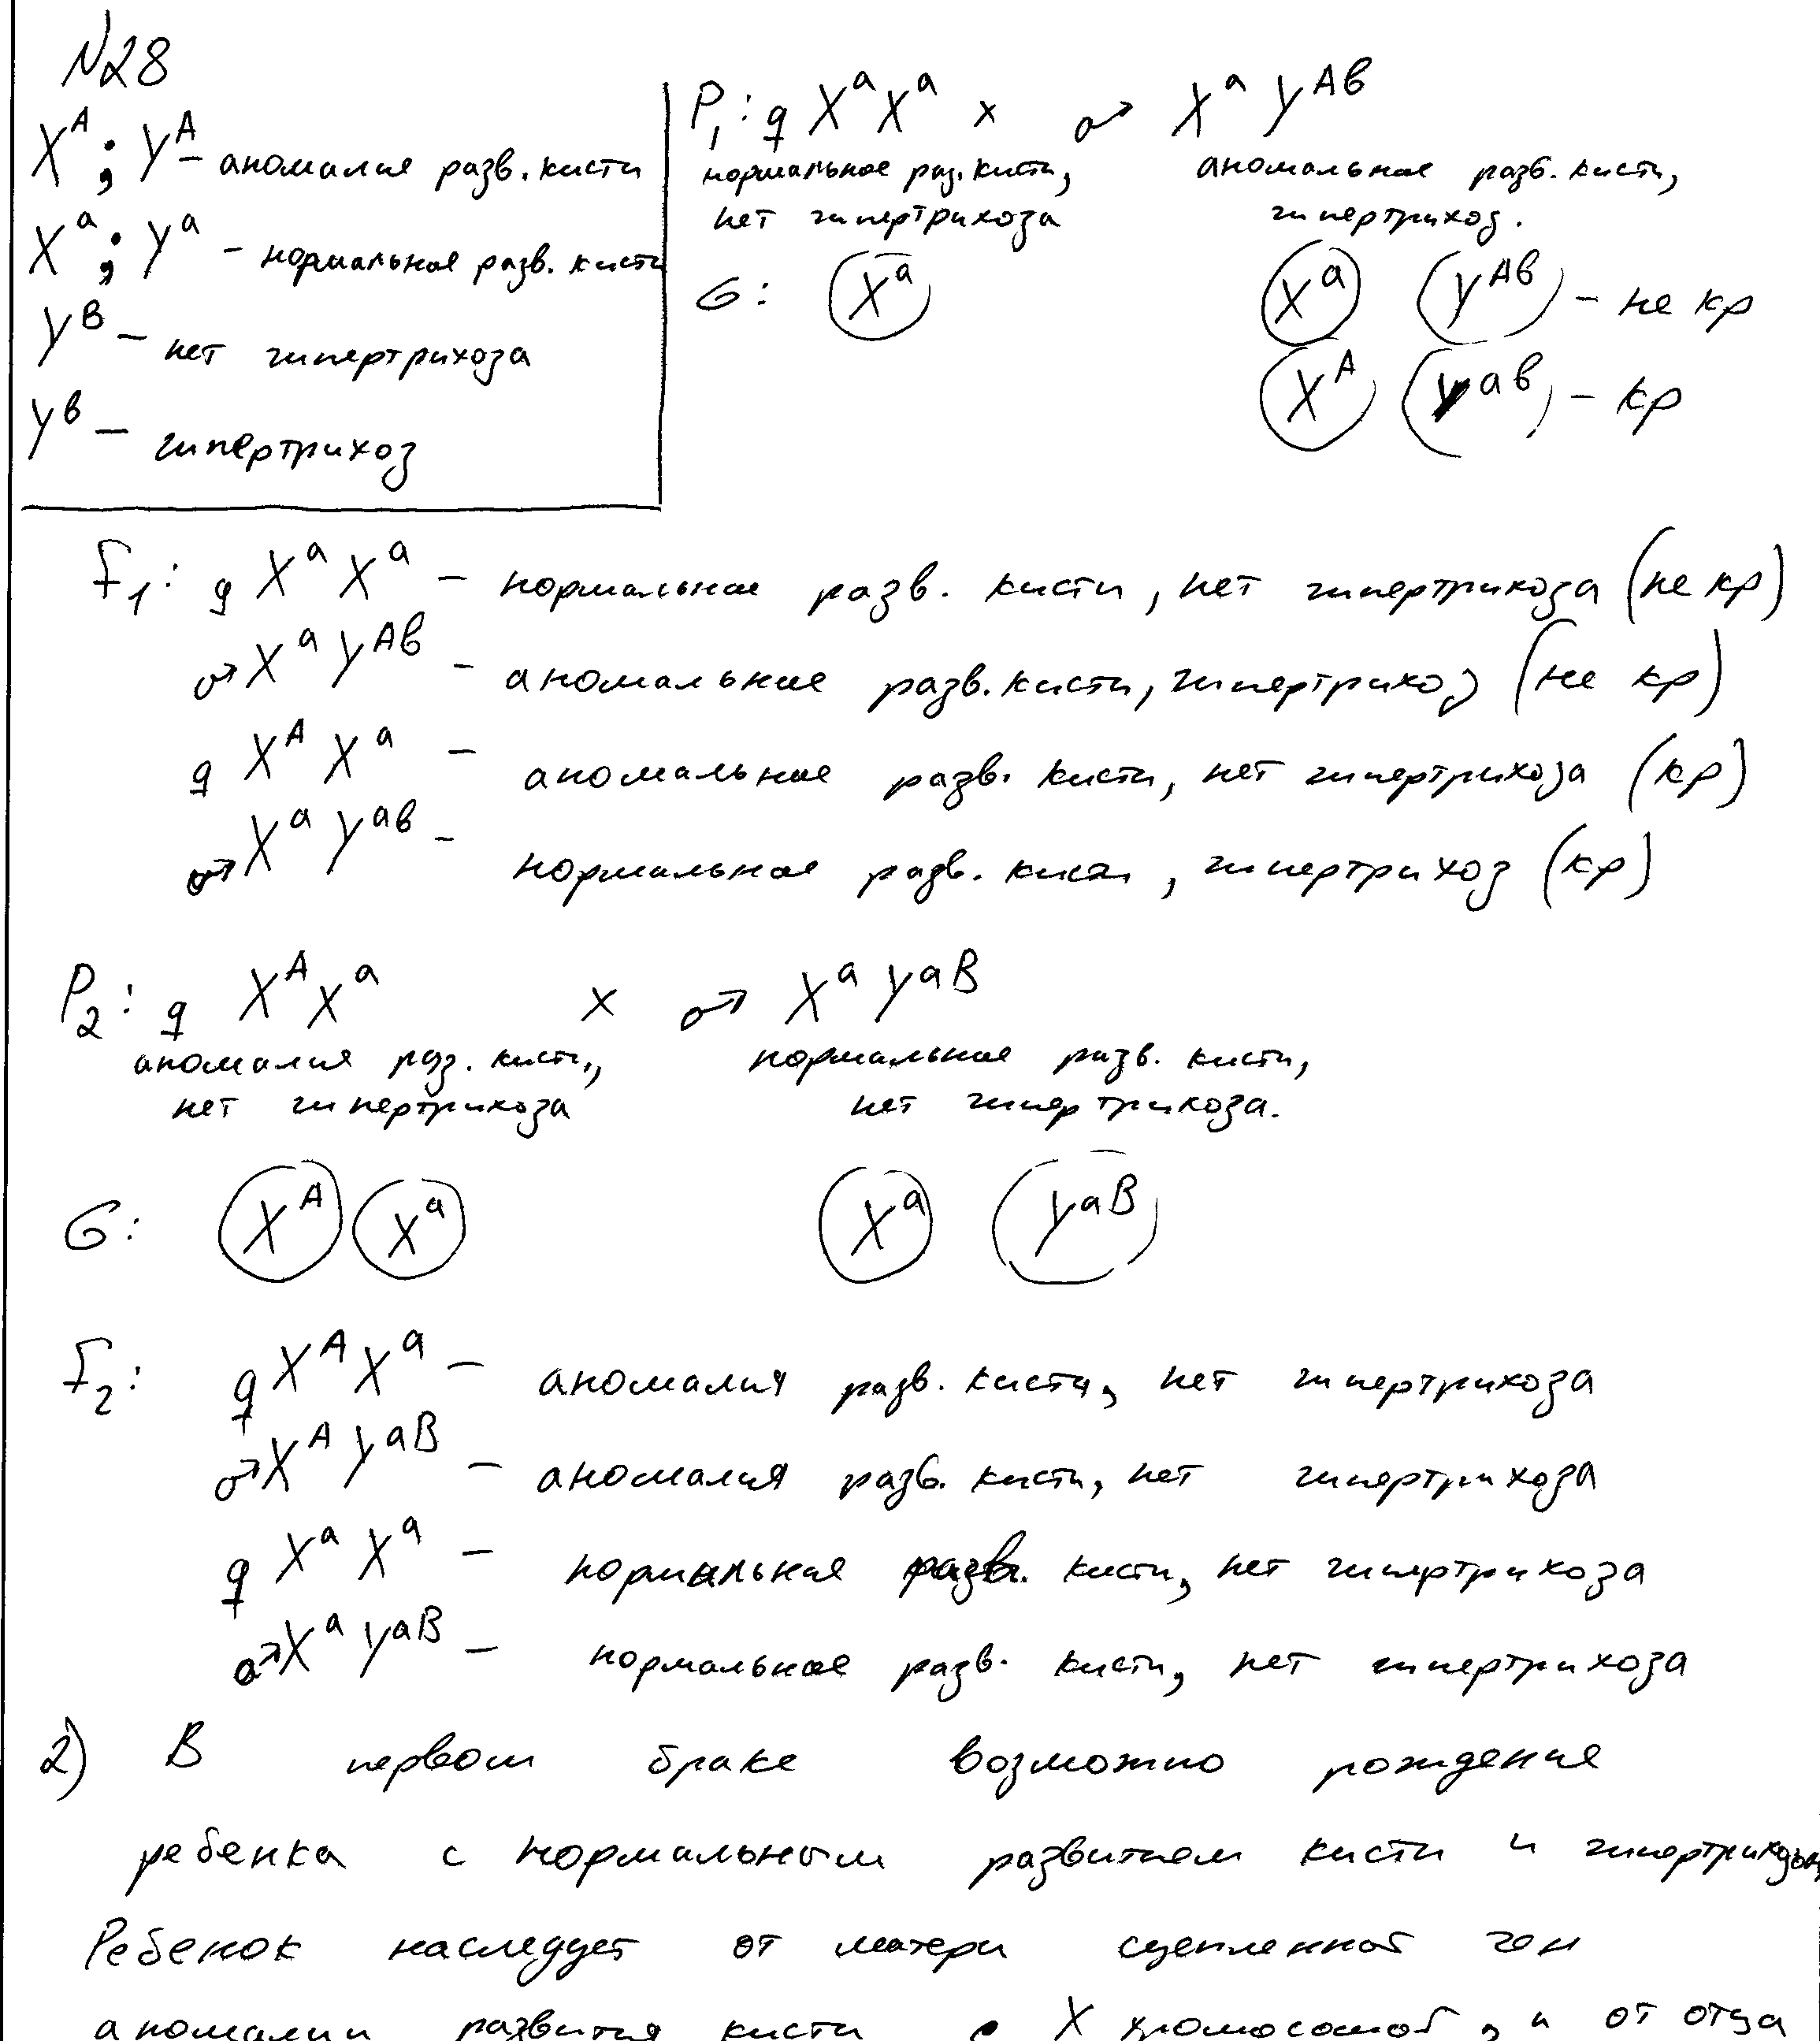 N28
X^A ; Y^A – аномалия разв. кисти
X^a ; Y^a – нормальное разв. кисти
Y^B – нет гипертрихоза
Y^b – гипертрихоз
P₁: ♀ X^a X^a × ♂ X^a Y^Ab
нормальное раз. кисти, аномальное разв. кисти,
нет гипертрихоза гипертрихоз.
G: X^a X^a Y^Ab – не кр
X^A Y^ab – кр
F₁: ♀ X^a X^a – нормальное разв. кисти, нет гипертрихоза (не кр)
♂ X^a Y^Ab – аномальное разв. кисти, гипертрихоз (не кр)
♀ X^A X^a – аномальное разв. кисти, нет гипертрихоза (кр)
♂ X^a Y^ab – нормальное разв. кисти, гипертрихоз (кр)
P₂: ♀ X^A X^a × ♂ X^a Y^aB
аномалия раз. кисти, нормальное разв. кисти,
нет гипертрихоза нет гипертрихоза.
G: X^A X^a X^a Y^aB
F₂: ♀ X^A X^a – аномалия разв. кисти, нет гипертрихоза
♂ X^A Y^aB – аномалия разв. кисти, нет гипертрихоза
♀ X^a X^a – нормальное разв. кисти, нет гипертрихоза
♂ X^a Y^aB – нормальное разв. кисти, нет гипертрихоза
2) В первом браке возможно рождение
ребенка с нормальным развитием кисти и гипертрихозом
Ребенок наследует от матери сцепленной ген
аномалии развития кисти с X хромосомой, а от отца